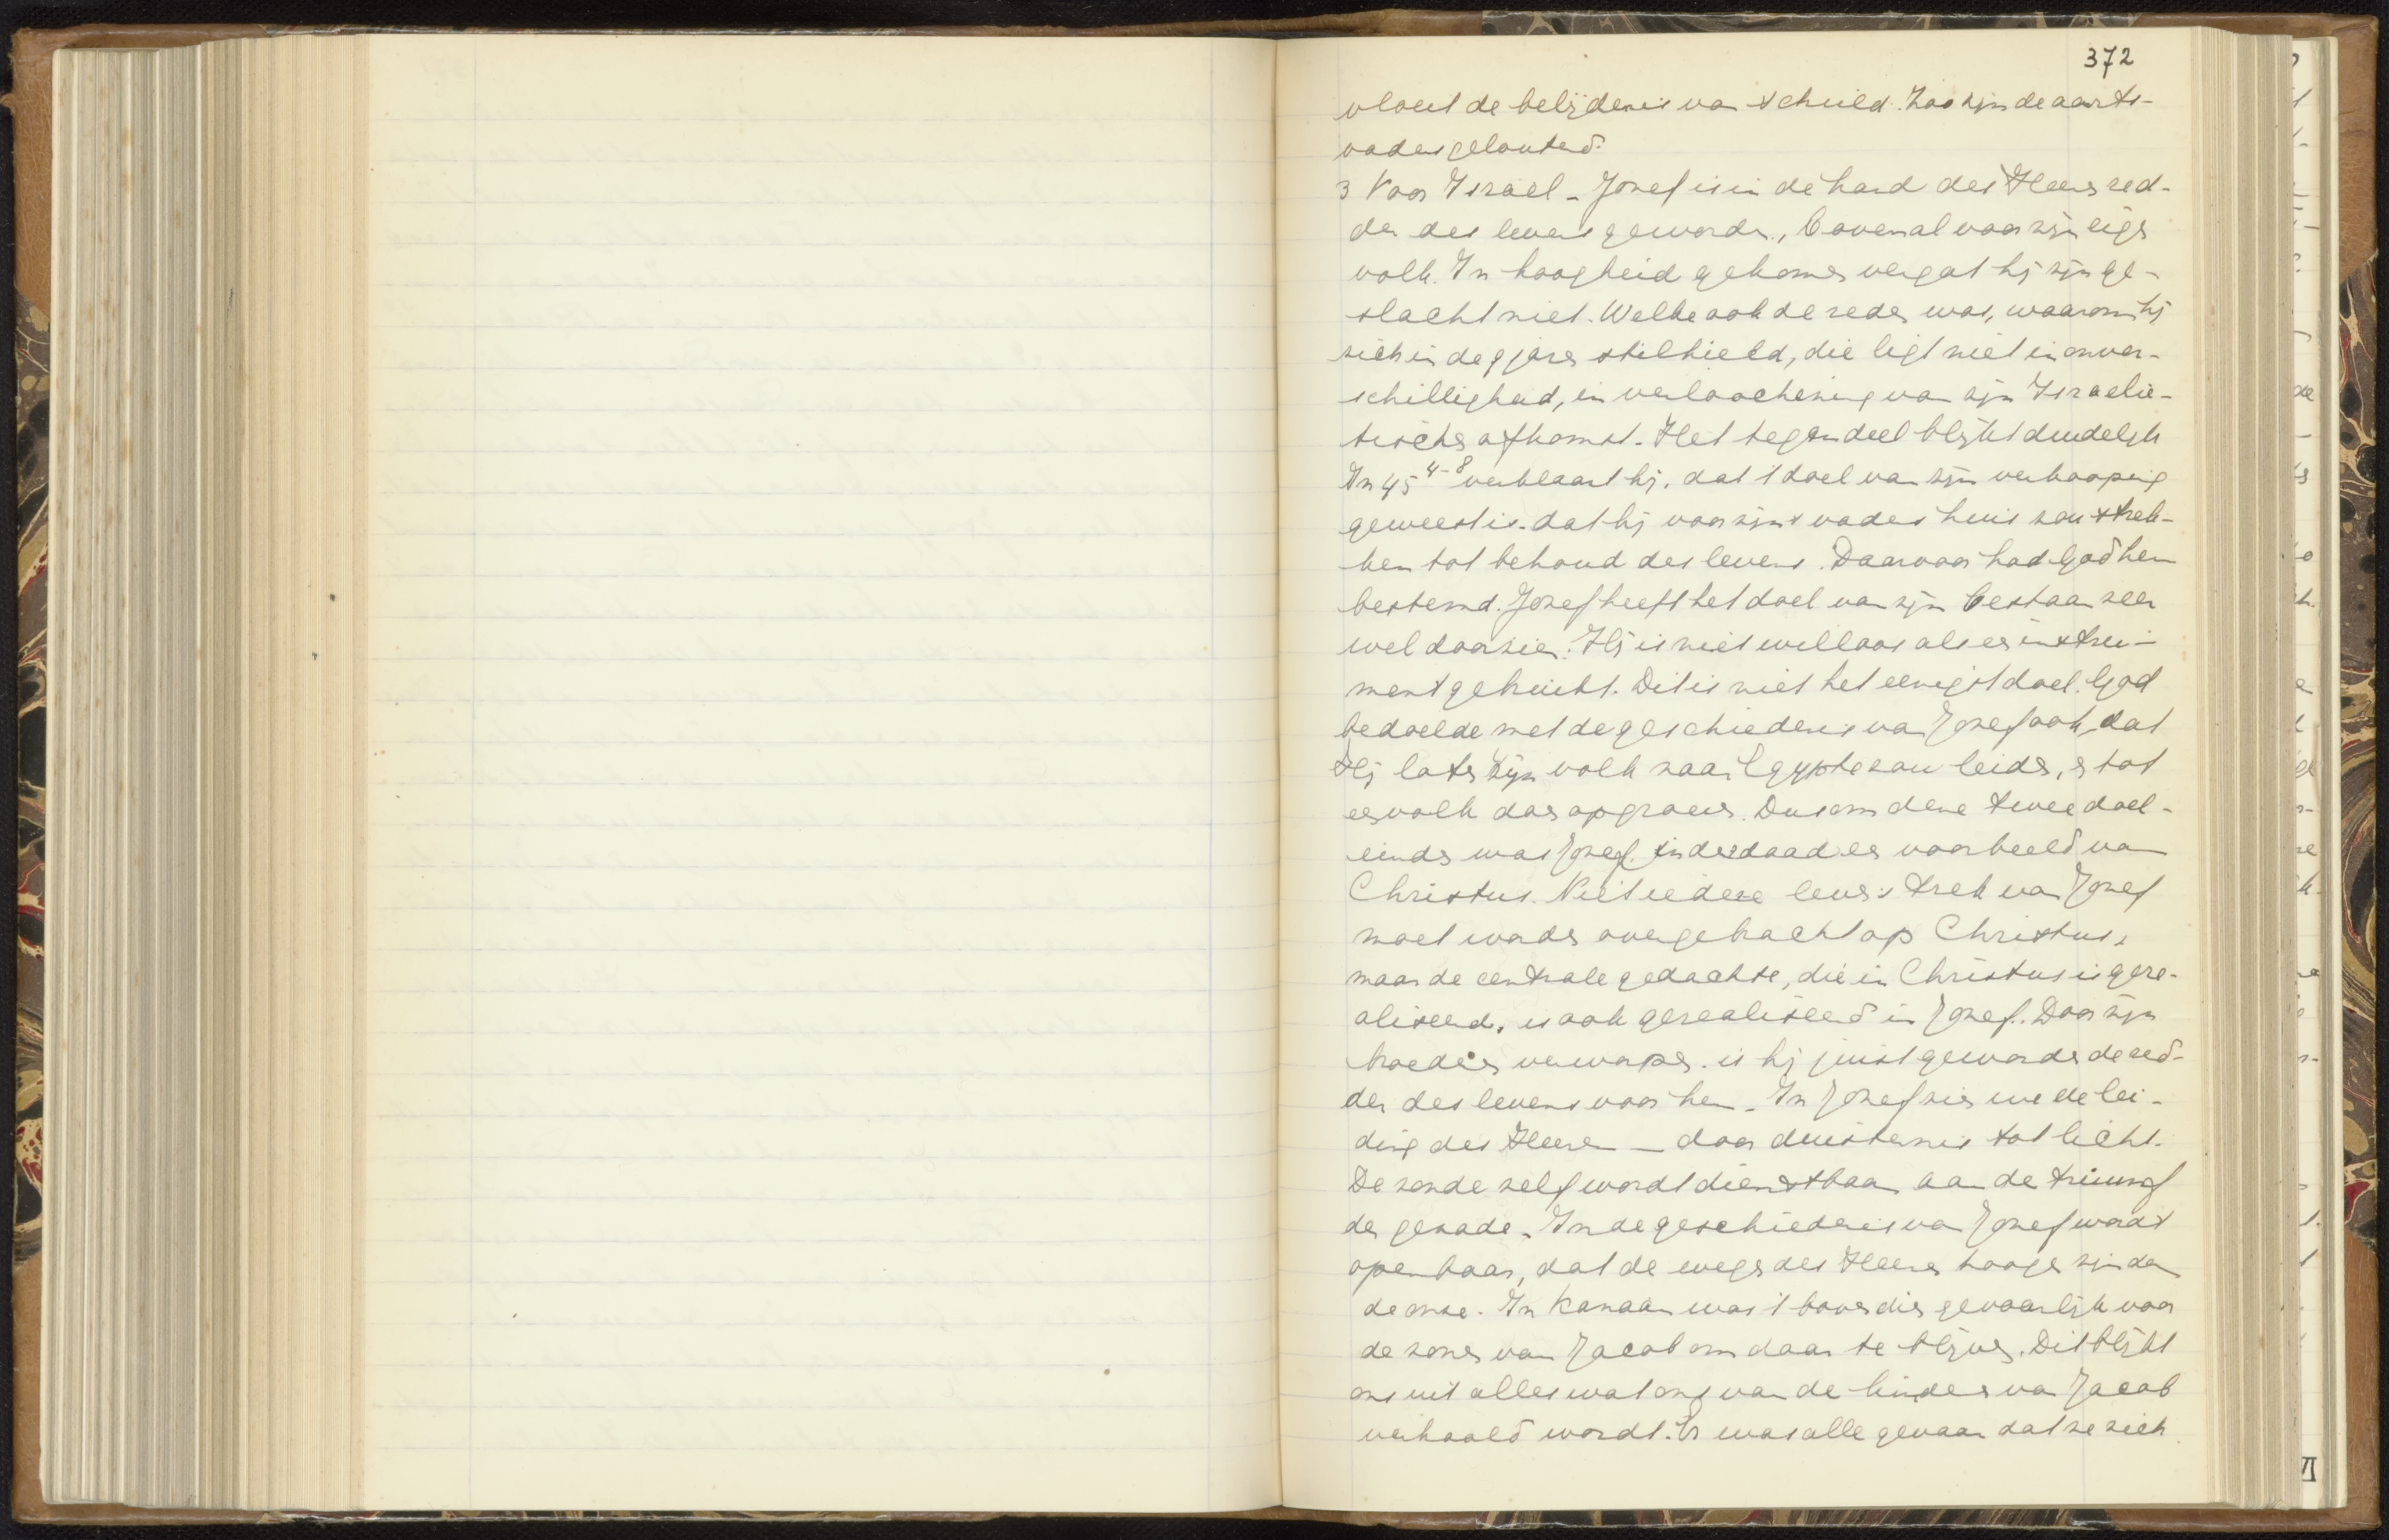 372
vloeit de belijdenis van schuld. Zoo zijn de aarts-
vaders gelouterd.
3 Voor Israel - Jozef is in de hand des Heeren red-
der des levens geworden, bovenal voor zijn eigen
volk. In hoogheid gekomen vergat hij zijn ge-
slacht niet. Welke ook de reden was, waarom hij
zich in de 9 jaren stilhield, die ligt niet in onver-
schilligheid, in verloochening van zijn Israelie-
tische afkomst. Het tegendeel blijkt duidelijk
In 45 4-8 verklaart hij, dat 't doel van zijn verkooping
geweest is. dat hij voor zijns vaders huis zou strek-
ken tot behoud des levens. Daarvoor had God hem
bestemd. Jozef heeft het doel van zijn bestaan zeer
wel doorzien. Hij is niet willoos als een instru-
ment gebruikt. Dit is niet het eenigst doel. God
bedoelde met de geschiedenis van Jozef ook, dat
Hij later Zijn volk naar Egypte zou leiden, en tot
een volk doen opgroeien. Dus om deze twee doel-
einden was Jozef. inderdaad een voorbeeld van
Christus. Niet iedere levenstrek van Jozef
moet worden overgebracht op Christus,
maar de centrale gedachte, die in Christus is gere-
aliseerd, is ook gerealiseerd in Jozef. Door zijn
broeders verworpen. is hij juist geworden de red-
der des levens voor hen. In Jozef zien we de lei-
ding des Heeren — door duisternis tot licht.
De zonde zelf wordt dienstbaar aan de triumf
der genade. In de geschiedenis van Jozef wordt
openbaar, dat de wegen des Heeren hooger zijn dan
de onze. In Kanaän was 't bovendien gevaarlijk voor
de zonen van Jacob om daar te blijven. Dit blijkt
ons uit alles wat ons van de kinderen van Jacob
verhaald wordt. Er was alle gevaar dat ze zich